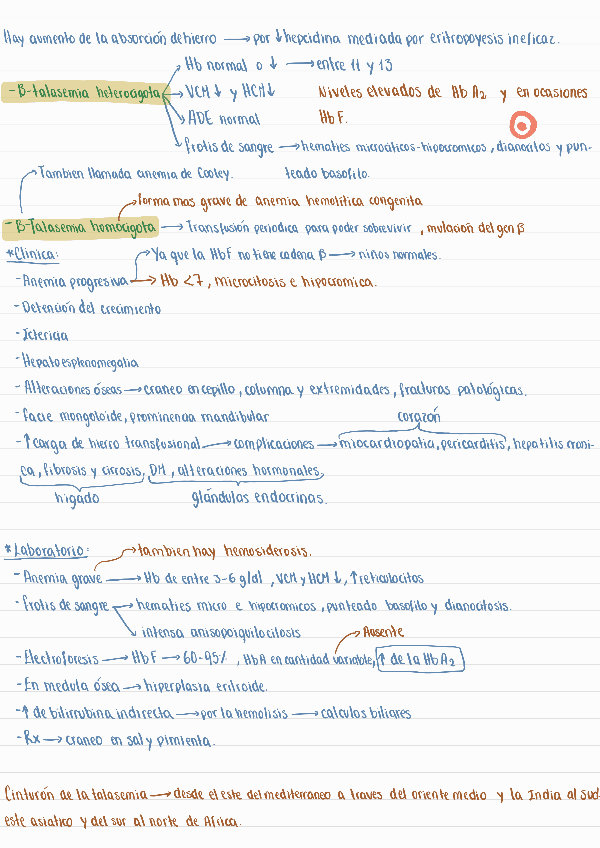 Hay aumento de la absorción de hierro → por ↓ hepcidina mediada por eritropoyesis ineficaz.
Hb normal o ↓ → entre 11 y 13
- β-talasemia heterocigota → VCM ↓ y HCM ↓ Niveles elevados de Hb A2 y en ocasiones
ADE normal Hb F.
frotis de sangre → hematies microciticos-hipocromicos, dianocitos y pun-
Tambien llamada anemia de Cooley. teado basofilo.
forma mas grave de anemia hemolitica congenita
- β-Talasemia homocigota → Transfusión periodica para poder sobrevivir, mutacion del gen β
*Clinica: Ya que la HbF no tiene cadena β → niños normales.
- Anemia progresiva → Hb <7, microcitosis e hipocromica.
- Detención del crecimiento
- Ictericia
- Hepatoesplenomegalia
- Alteraciones óseas → craneo en cepillo, columna y extremidades, fracturas patológicas.
- facie mongoloide, prominencia mandibular corazón
- ↑ carga de hierro transfusional → complicaciones → miocardiopatia, pericarditis, hepatitis croni-
ca, fibrosis y cirrosis, DM, alteraciones hormonales,
higado glándulas endocrinas.
*Laboratorio: tambien hay hemosiderosis.
- Anemia grave → Hb de entre 3-6 g/dl, VCM y HCM ↓, ↑ reticulocitos
- frotis de sangre → hematies micro e hipocromicos, punteado basofilo y dianocitosis.
intensa anisopoiquilocitosis
Ausente
- Electroforesis → HbF → 60-95%, HbA en cantidad variable, ↑ de la HbA2
- En medula ósea → hiperplasia eritroide.
- ↑ de bilirrubina indirecta → por la hemolisis → calculos biliares
- Rx → craneo en sal y pimienta.
Cinturón de la talasemia → desde el este del mediterraneo a traves del oriente medio y la India al Sud-
este asiatico y del sur al norte de Africa.